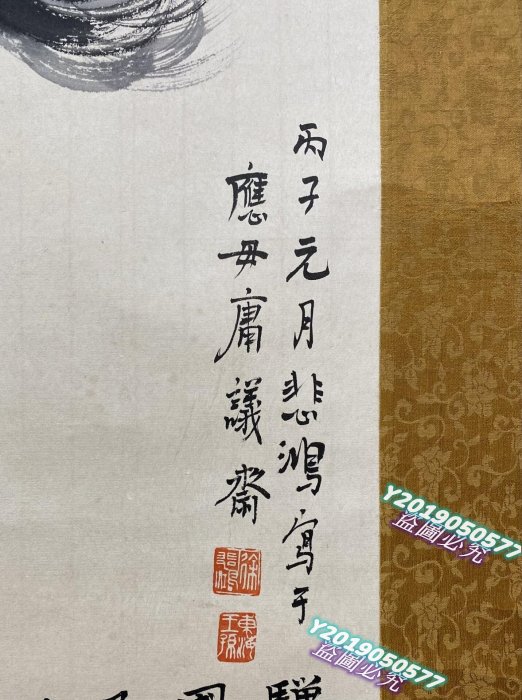 丙子元月悲鴻寫于
應毋庸議齋
徐悲鴻
東海王孫
Y2019050577
盜圖必究
Y2019050577
盜圖必究